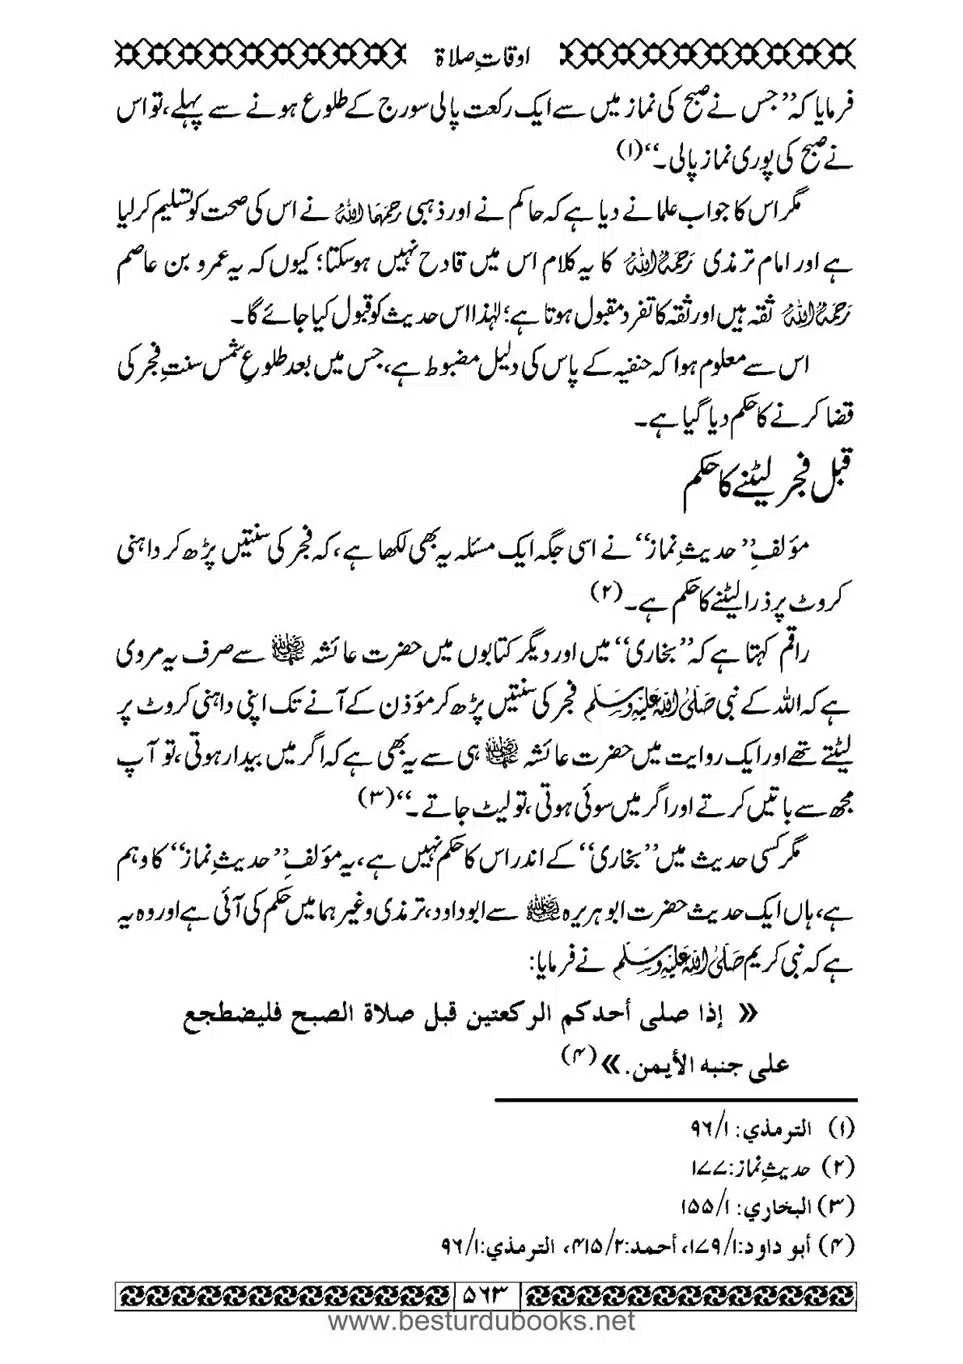 اوقاتِ صلاۃ
فرمایا کہ ’’جس نے صبح کی نماز میں سے ایک رکعت پالی سورج کے طلوع ہونے سے پہلے، تو اس
نے صبح کی پوری نماز پالی۔‘‘ (۱)
مگر اس کا جواب علما نے دیا ہے کہ حاکم نے اور ذہبی رَحِمَهُمَا اللّٰهُ نے اس کی صحت کو تسلیم کر لیا
ہے اور امام ترمذی رَحِمَهُ اللّٰهُ کا یہ کلام اس میں قادح نہیں ہوسکتا؛ کیوں کہ یہ عمرو بن عاصم
رَحِمَهُ اللّٰهُ ثقہ ہیں اور ثقہ کا تفرد مقبول ہوتا ہے؛ لہٰذا اس حدیث کو قبول کیا جائے گا۔
اس سے معلوم ہوا کہ حنفیہ کے پاس کی دلیل مضبوط ہے، جس میں بعد طلوعِ شمس سنتِ فجر کی
قضا کرنے کا حکم دیا گیا ہے۔
قبل فجر لیٹنے کا حکم
مؤلفِ ’’حدیثِ نماز‘‘ نے اسی جگہ ایک مسئلہ یہ بھی لکھا ہے، کہ فجر کی سنتیں پڑھ کر داہنی
کروٹ پر ذرا لیٹنے کا حکم ہے۔ (۲)
راقم کہتا ہے کہ ’’بخاری‘‘ میں اور دیگر کتابوں میں حضرت عائشہ ؓ سے صرف یہ مروی
ہے کہ اللہ کے نبی صَلَّی اللّٰهُ عَلَیْهِ وَسَلَّم فجر کی سنتیں پڑھ کر مؤذن کے آنے تک اپنی داہنی کروٹ پر
لیٹتے تھے اور ایک روایت میں حضرت عائشہ ؓ ہی سے یہ بھی ہے کہ اگر میں بیدار ہوتی، تو آپ
مجھ سے باتیں کرتے اور اگر میں سوئی ہوتی، تو لیٹ جاتے۔‘‘ (۳)
مگر کسی حدیث میں ’’بخاری‘‘ کے اندر اس کا حکم نہیں ہے، یہ مؤلفِ ’’حدیثِ نماز‘‘ کا وہم
ہے، ہاں ایک حدیث حضرت ابو ہریرہ ؓ سے ابو داود، ترمذی وغیرہما میں حکم کی آئی ہے اور وہ یہ
ہے کہ نبی کریم صَلَّی اللّٰهُ عَلَیْهِ وَسَلَّم نے فرمایا:
« إذا صلى أحدكم الركعتين قبل صلاة الصبح فليضطجع
على جنبه الأيمن. » (۴)
(۱) الترمذي: ۱/۹۶
(۲) حدیثِ نماز: ۱۷۷
(۳) البخاري: ۱/۱۵۵
(۴) أبو داود: ۱/۱۷۹، أحمد: ۲/۴۱۵، الترمذي: ۱/۹۶
۵۶۳
www.besturdubooks.net